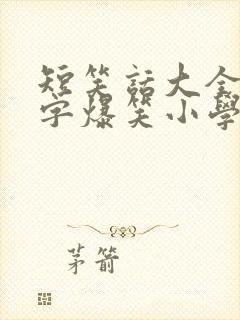 短笑話大全
字爆笑小學
茅箭